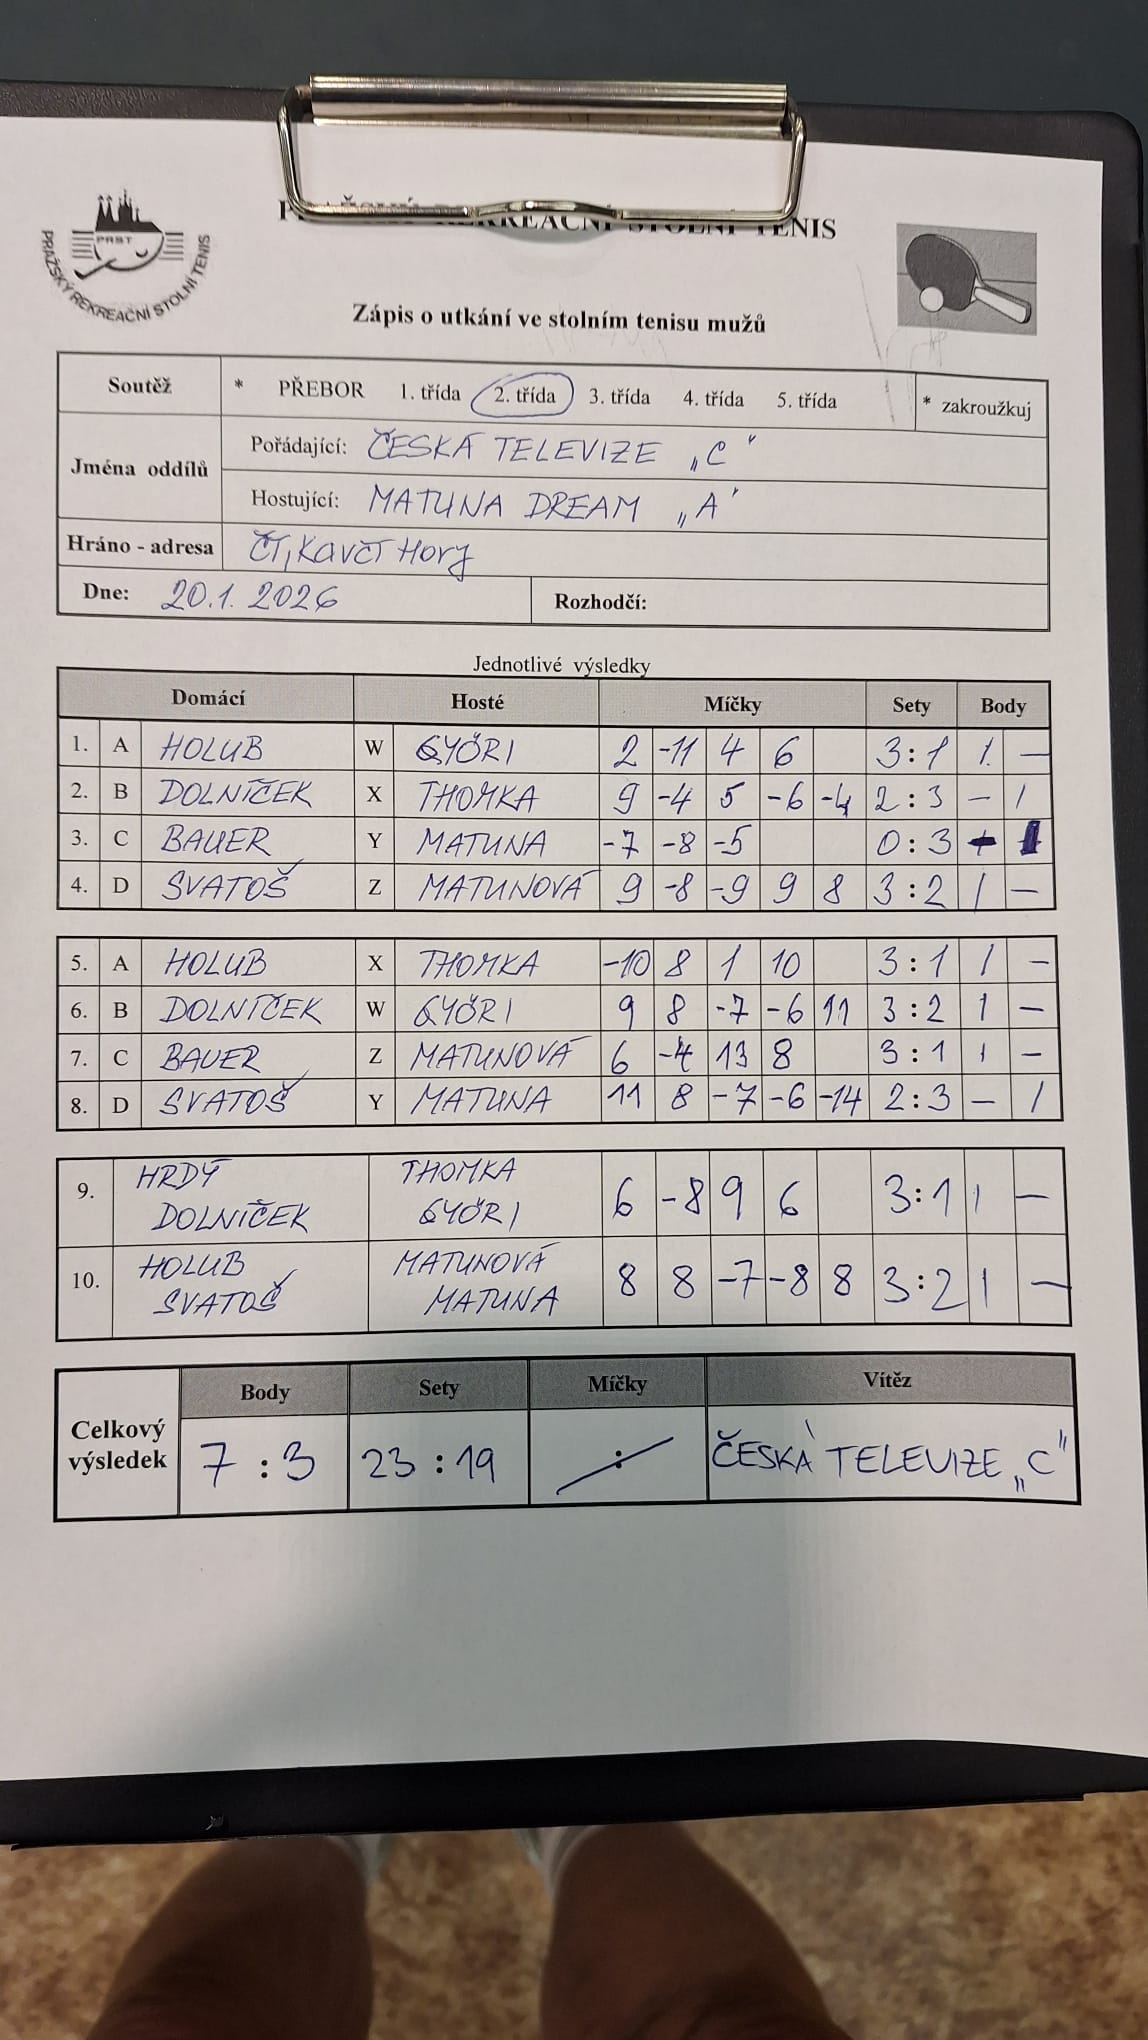 PRST
PRAŽSKÝ REKREAČNÍ STOLNÍ TENIS
REKREAČNÍ STOLNÍ TENIS
Zápis o utkání ve stolním tenisu mužů
Soutěž * PŘEBOR 1. třída 2. třída 3. třída 4. třída 5. třída * zakroužkuj
Jména oddílů
Pořádající: ČESKÁ TELEVIZE „C"
Hostující: MATUNA DREAM „A"
Hráno - adresa ČT, KAVČÍ HORY
Dne: 20.1. 2026 Rozhodčí:
Jednotlivé výsledky
Domácí Hosté Míčky Sety Body
1. A HOLUB W GYÖRI 2 -11 4 6 3:1 1 —
2. B DOLNÍČEK X THOMKA 9 -4 5 -6 -4 2:3 — 1
3. C BAUER Y MATUNA -7 -8 -5 0:3 — 1
4. D SVATOŠ Z MATUNOVÁ 9 -8 -9 9 8 3:2 1 —
5. A HOLUB X THOMKA -10 8 1 10 3:1 1 —
6. B DOLNÍČEK W GYÖRI 9 8 -7 -6 11 3:2 1 —
7. C BAUER Z MATUNOVÁ 6 -4 13 8 3:1 1 —
8. D SVATOŠ Y MATUNA 11 8 -7 -6 -14 2:3 — 1
HRDÝ THOMKA
9. 6 -8 9 6 3:1 1 —
DOLNÍČEK GYÖRI
HOLUB MATUNOVÁ
10. 8 8 -7 -8 8 3:2 1 —
SVATOŠ MATUNA
Body Sety Míčky Vítěz
Celkový
výsledek 7 : 3 23 : 19 : ČESKÁ TELEVIZE „C"